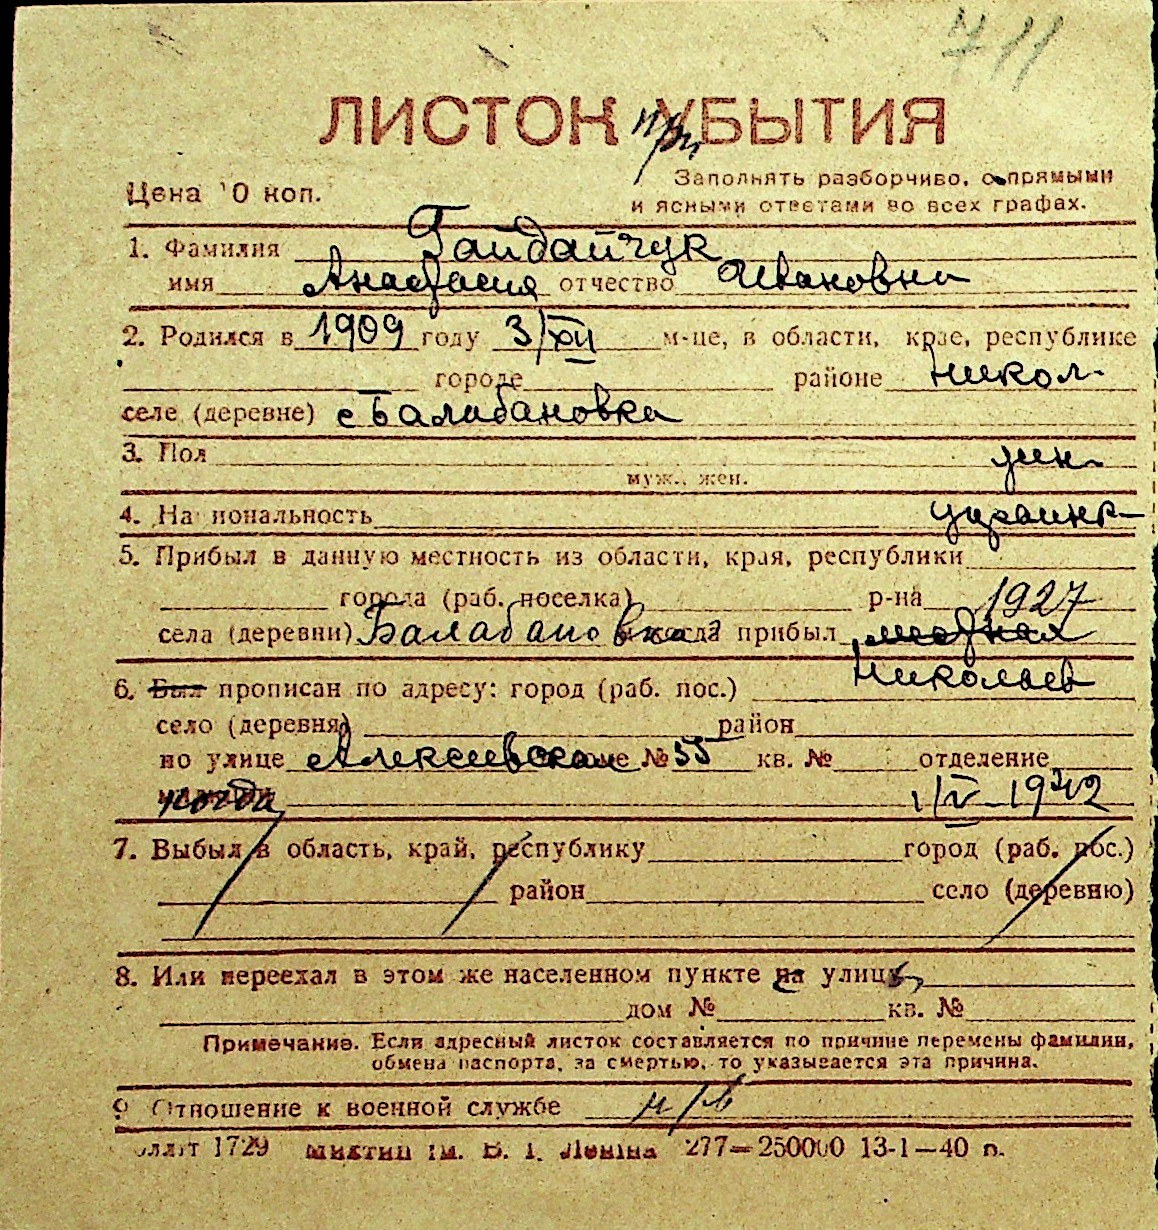 711
ЛИСТОК УБЫТИЯ
при
Цена 10 коп.
Заполнять разборчиво, с прямыми
и ясными ответами во всех графах.
1. Фамилия Гайдайчук
имя Анастасия отчество Ивановна
2. Родился в 1909 году 3/XII м-це, в области, крае, республике
городе районе Никол-
селе (деревне) с Балабановка
3. Пол жен-
муж., жен.
4. Национальность украинк-
5. Прибыл в данную местность из области, края, республики
города (раб. поселка) р-на 1927
села (деревни) Балабановка и когда прибыл
6. Был прописан по адресу: город (раб. пос.) Николаев
село (деревня) район
по улице Алексеевская доме № 55 кв. № отделение
когда 1/V-1942
7. Выбыл в область, край, республику город (раб. пос.)
район село (деревню)
8. Или переехал в этом же населенном пункте на улицу
дом № кв. №
Примечание. Если адресный листок составляется по причине перемены фамилии,
обмена паспорта, за смертью, то указывается эта причина.
9 Отношение к военной службе н/в
1729 им. В. І. Леніна 277—250000 13-1—40 р.